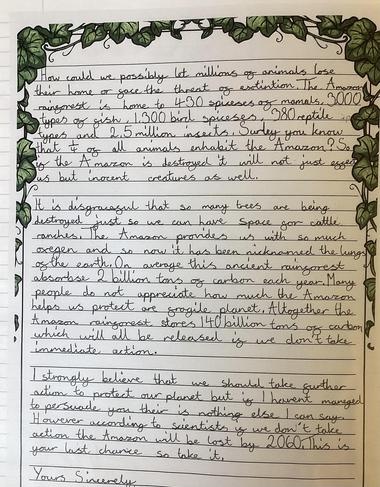 How could we possibly let millions of animals lose
their home or face the threat of exstintion. The Amazon
rainforest is home to 430 spicses of mamals, 3000
types of fish, 1,300 bird spicses, 380 reptile
types and 2.5 million insects. Surley you know
that of all animals enhabit the Amazon? So
if the Amazon is destroyed it will not just effect
us but inocent creatures as well.
It is disgraceful that so many trees are being
destroyed just so we can have space for cattle
ranches. The Amazon provides us with so much
oxegen and so now it has been nicknamed the lungs
of the earth. On average this ancient rainforest
absorbse 2 billion tons of carbon each year. Many
people do not appreciate how much the Amazon
helps us protect are fragile planet. Altogether the
Amazon rainforest stores 140 billion tons of carbon
which will all be released if we don't take
immediate action.
I strongly believe that we should take further
action to protect our planet but if I havent managed
to persuade you their is nothing else I can say.
However according to scientists if we don't take
action the Amazon will be lost by 2060. This is
your last chance so take it.
Yours Sincerely